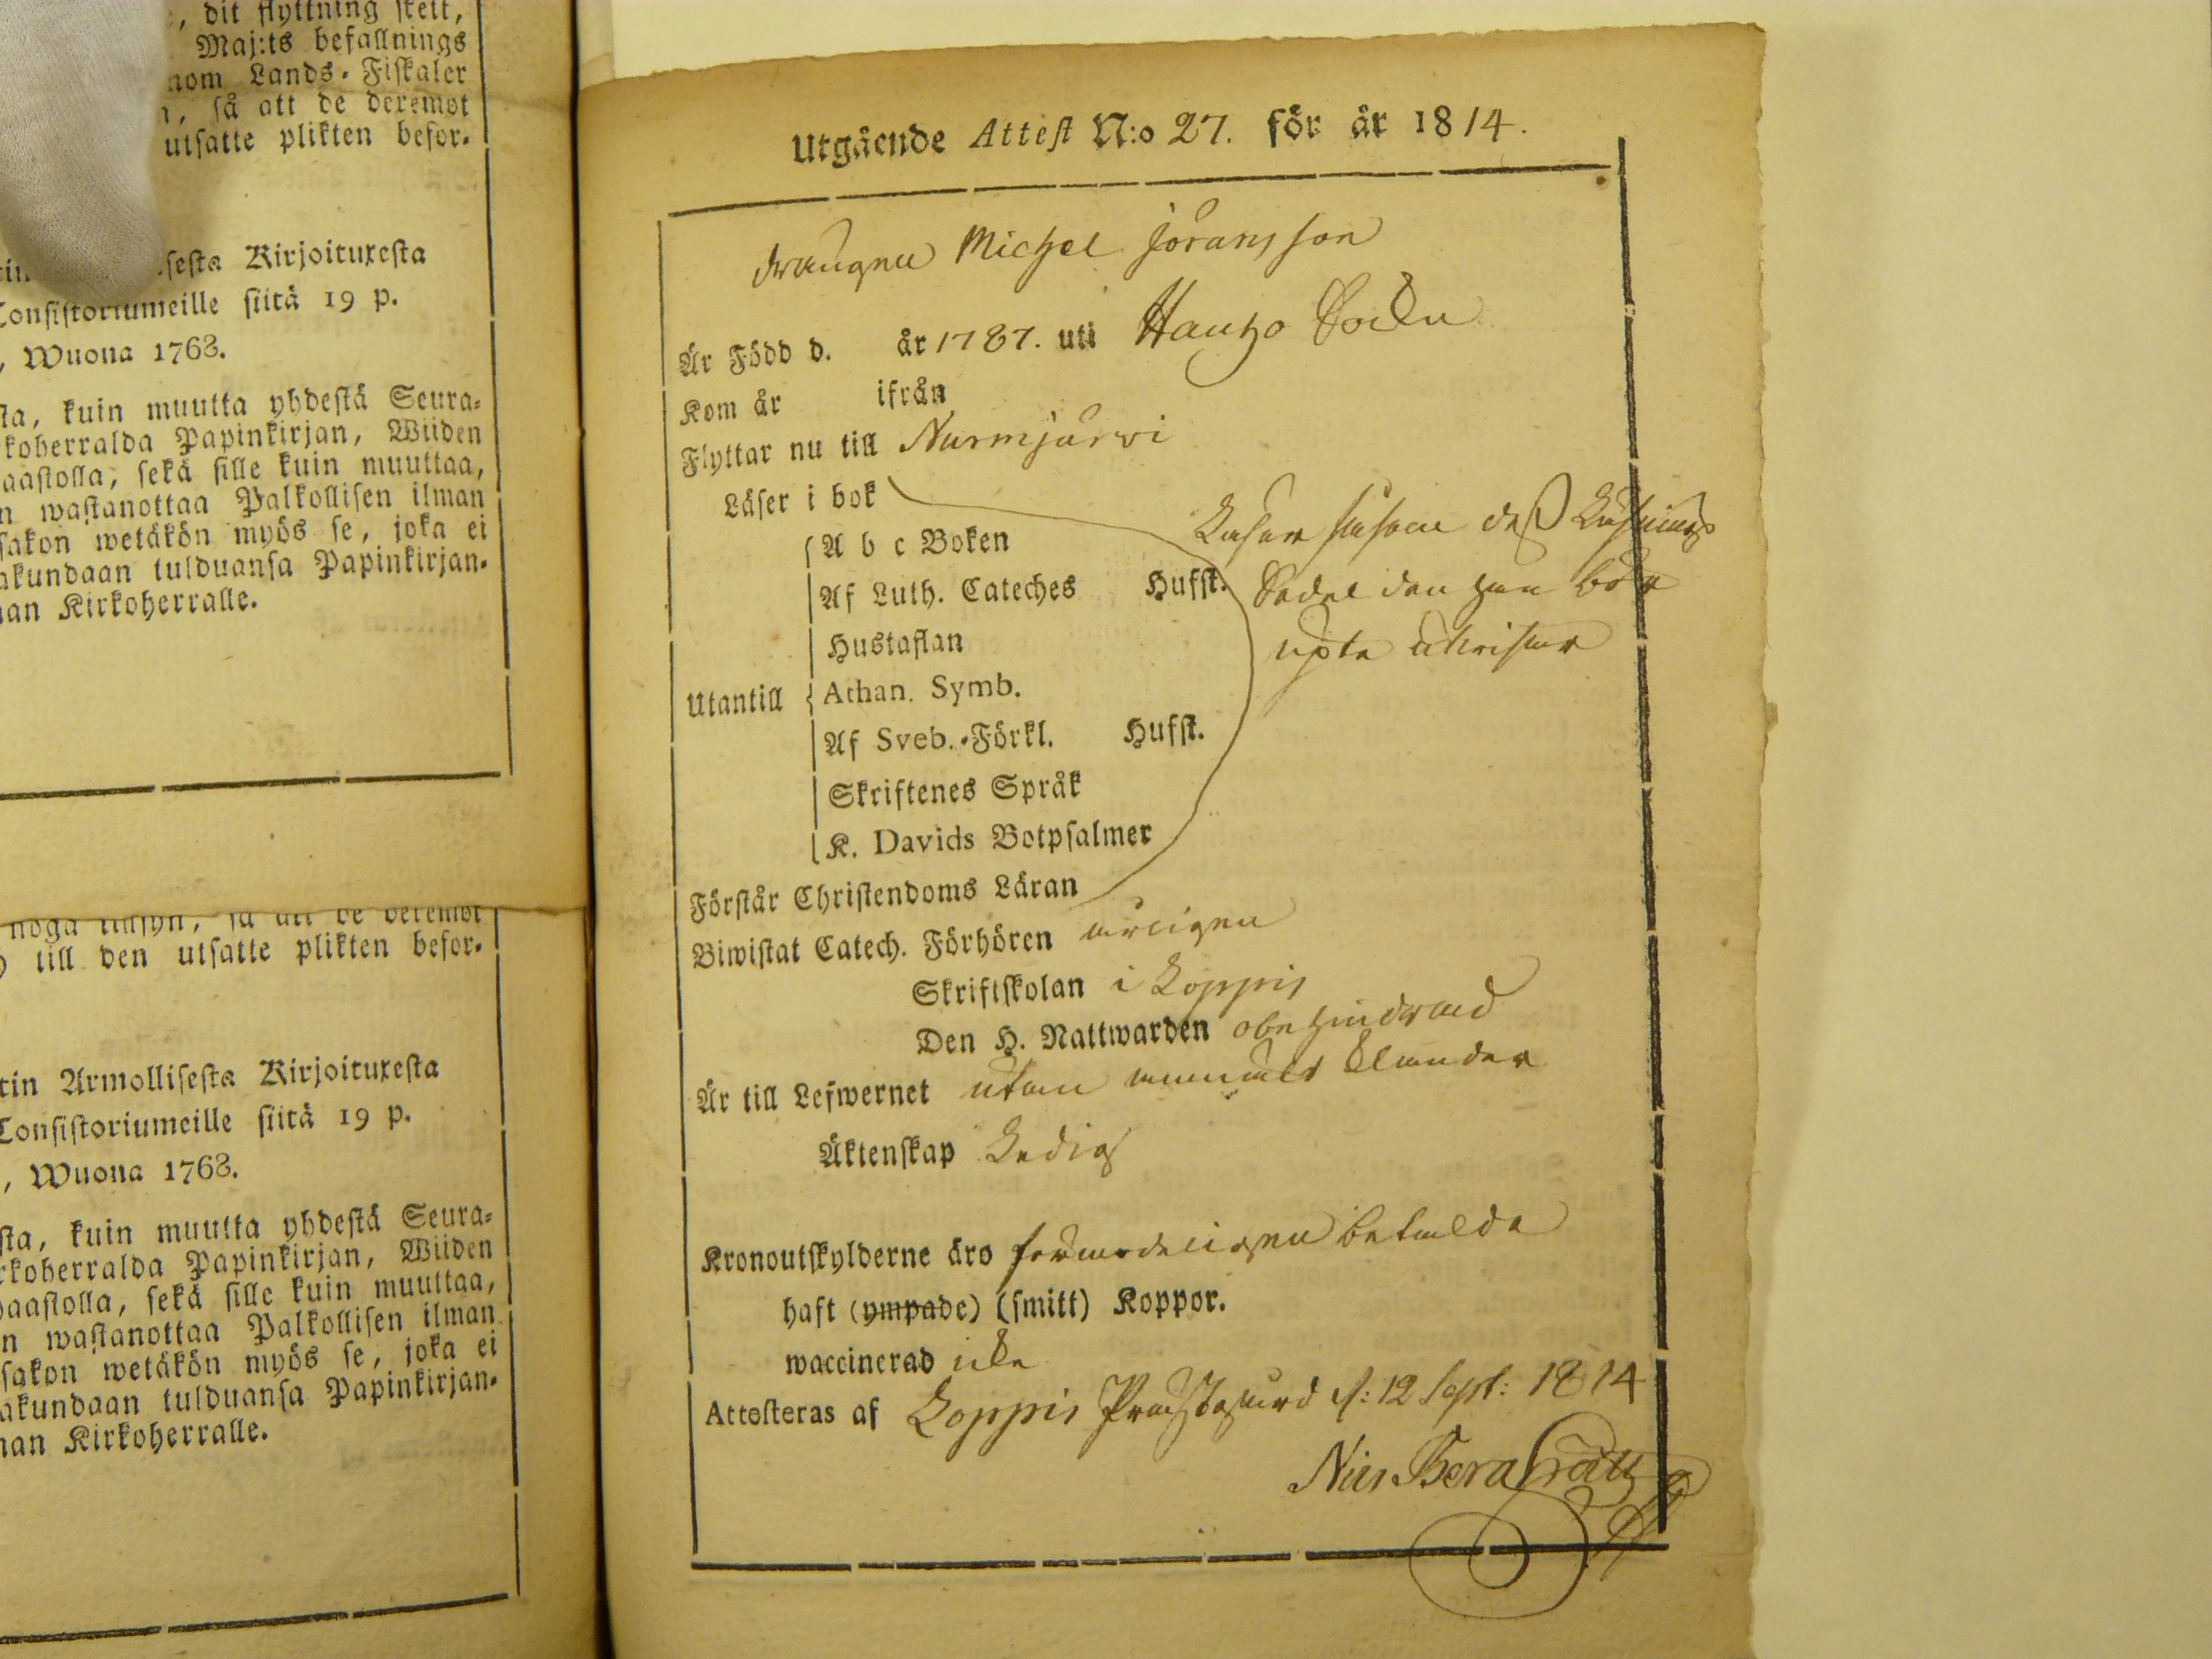 , dit flyttning skett,
Maj:ts befallnings
nom Lands-Fiskaler
, så att de deremot
utsatte plikten befor-
sesta Kirjoituxesta
Consistoriumeille siitä 19 p.
, Wuona 1763.
sta, kuin muutta yhdestä Seura-
koherralda Papinkirjan, Wiiden
aastolla, sekä sille kuin muuttaa,
n wastanottaa Palkollisen ilman
sakon wetäkön myös se, joka ei
akundaan tulduansa Papinkirjan-
an Kirkoherralle.
noga tillsyn, så att de deremot
till den utsatte plikten befor-
tin Armollisesta Kirjoituxesta
Consistoriumeille siitä 19 p.
, Wuona 1763.
sta, kuin muutta yhdestä Seura-
rkoherralda Papinkirjan, Wiiden
aastolla, sekä sille kuin muuttaa,
n wastanottaa Palkollisen ilman
sakon wetäkön myös se, joka ei
akundaan tulduansa Papinkirjan-
nan Kirkoherralle.
Utgående Attest N:o 27. för år 1814.
drängen Michel Jöransson
Är Född d. år 1787. uti Hauho Sockn
Kom år ifrån
Flyttar nu till Nurmjärwi
Läser i bok
A b c Boken
Läser såsom dess Läsnings
Af Luth. Cateches Hufst.
Sedel den han bör
Hustaflan
upte utwisar
Utantill Athan. Symb.
Af Sveb.-Förkl. Hufst.
Skriftenes Språk
K. Davids Botpsalmer
Förstår Christendoms Läran
Biwistat Catech. Förhören årligen
Skriftskolan i Loppis
Den H. Nattwarden obehindrad
Är till Lefwernet utan allmänt klander
Äktenskap Ledig
Kronoutskylderne äro förmodeligen betalda
haft (ympade) (smitt) Koppor.
waccinerad icke
Attesteras af Loppis Prästegård d: 12 Sept: 1814
Nils Bergstrått